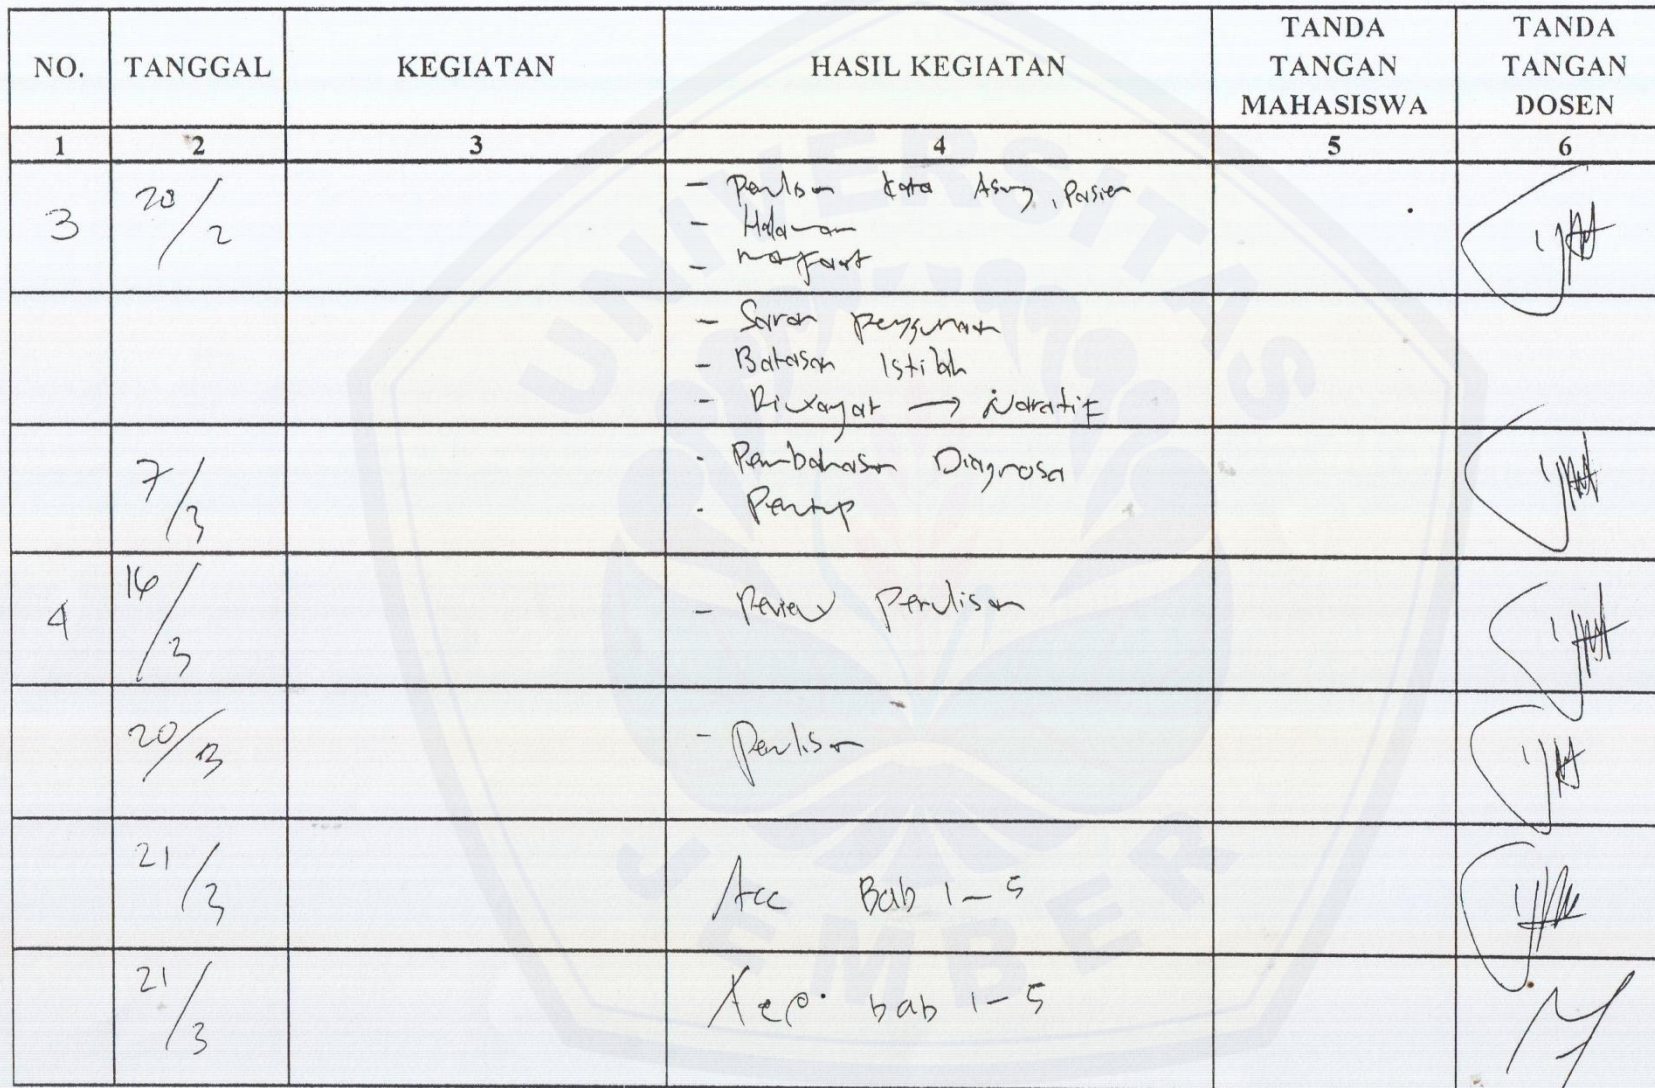 NO. TANGGAL KEGIATAN HASIL KEGIATAN TANDA TANGAN MAHASISWA TANDA TANGAN DOSEN
1 2 3 4 5 6
3 20/2 - Penulisan kata Asing, Pasien
- Halaman
- manfaat
- Saran penggunaan
- Batasan Istilah
- Riwayat → Naratif
7/3 - Pembahasan Diagnosa
- Penutup
4 16/3 - Review Penulisan
20/3 - Penulisan
21/3 Acc Bab 1-5
21/3 Acc. bab 1-5
UNIVERSITAS
JEMBER